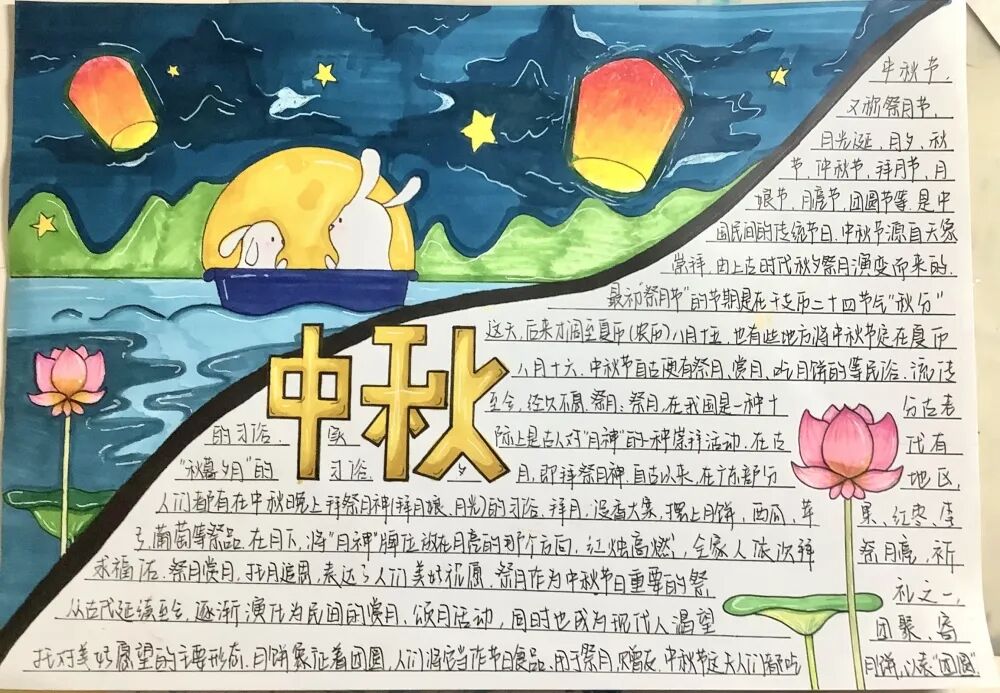 中秋
中秋节，
又称祭月节，
月光诞、月夕、秋
节、仲秋节、拜月节、月
娘节、月亮节、团圆节等，是中
国民间的传统节日。中秋节源自天象
崇拜，由上古时代秋夕祭月演变而来的。
最初“祭月节”的节期是在干支历二十四节气“秋分”
这天，后来才调至夏历（农历）八月十五，也有些地方将中秋节定在夏历
八月十六。中秋节自古便有祭月、赏月、吃月饼的等民俗，流传
至今，经久不息。祭月：祭月，在我国是一种十 分古老
的习俗。 际上是古人对“月神”的一种崇拜活动。在古 代有
“秋暮夕月”的 习俗。夕 月，即拜祭月神。自古以来，在广东部分 地区，
人们都有在中秋晚上拜祭月神（拜月娘、月光）的习俗。拜月，设香大案，摆上月饼、西瓜、苹 果、红枣、李
子、葡萄等祭品。在月下，将“月神”牌位放在月亮的那个方向，红烛高燃，全家人依次拜 祭月亮，祈
求福佑。祭月赏月，托月追思，表达了人们美好祝愿。祭月作为中秋节日重要的祭 礼之一，
从古代延续至今，逐渐演化为民间的赏月、颂月活动，同时也成为现代人渴望 团聚、寄
托对美好愿望的主要形态。月饼象征着团圆，人们将它当作节日食品，用于祭月、赠友。中秋节这天人们都吃 月饼，以表“团圆”